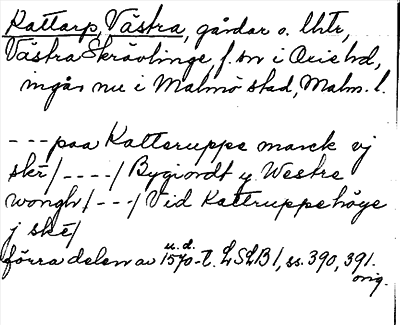 Kattarp, Västra, gårdar o. lhtr,
Västra Skrävlinge, f. sn i Oxie hd,
ingår nu i Malmö stad, Malm. l.
---paa Katteruppe marck vj
skē/----/Bygiordt y Westre
wongh/---/Vid Kattruppehöye
j skē/
u. d.
förra delen av 1570-t. LSLB 1, ss. 390, 391.
orig.